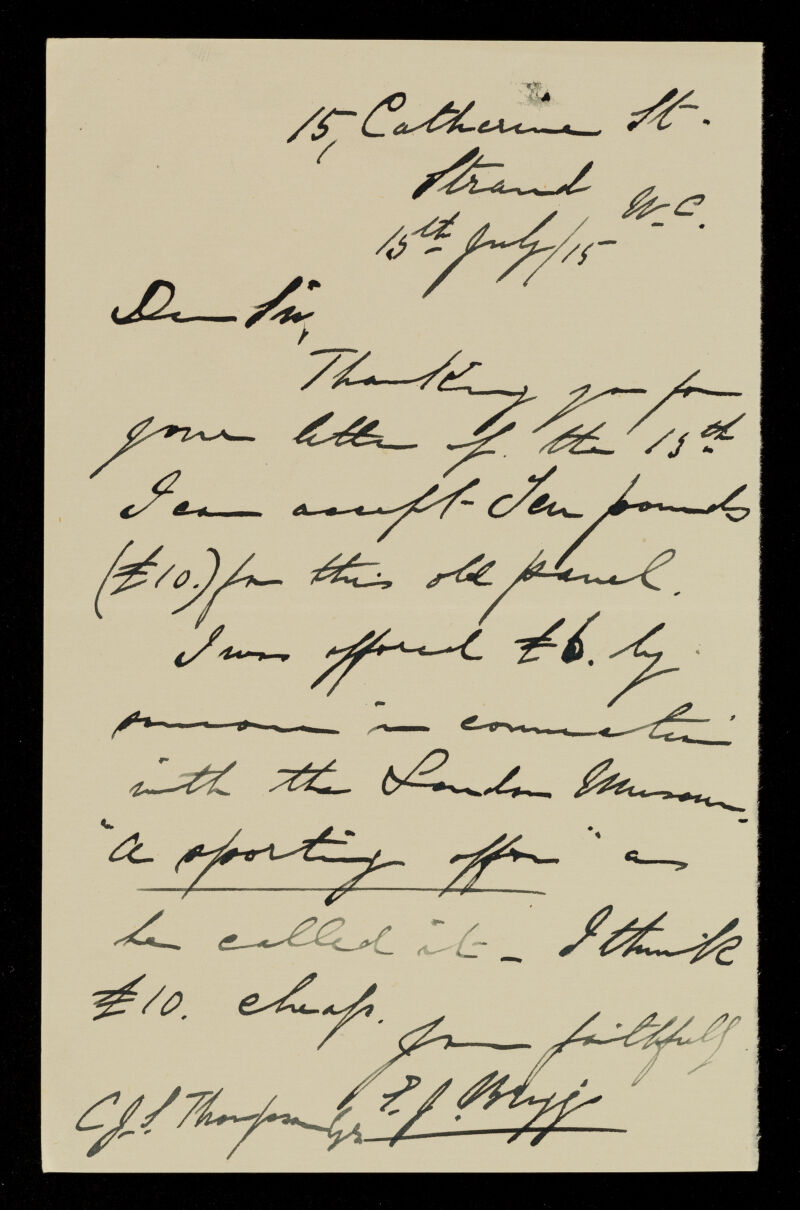 15, Catherine St.
Strand W.C.
15th July/15
Dear Sir,
Thanking you for
your letter of the 13th
I can accept Ten pounds
(£10.) for this old panel.
I was offered £6. by
someone in connection
with the London Museum.
"A sporting offer" as
he called it – I think
£10. cheap.
Yours faithfully
C.J.S. Thompson Esq P. J. Briggs